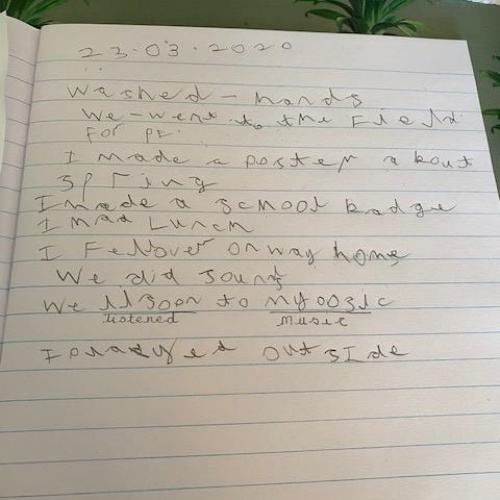 23.03.2020
washed-hands
We-went to the Field
For PE.
I made a poster about
spring
I made a school badge
I had Lunch
I Fellover on way home
We did sount
We llsoon to myoosic
listened music
I prayed outside